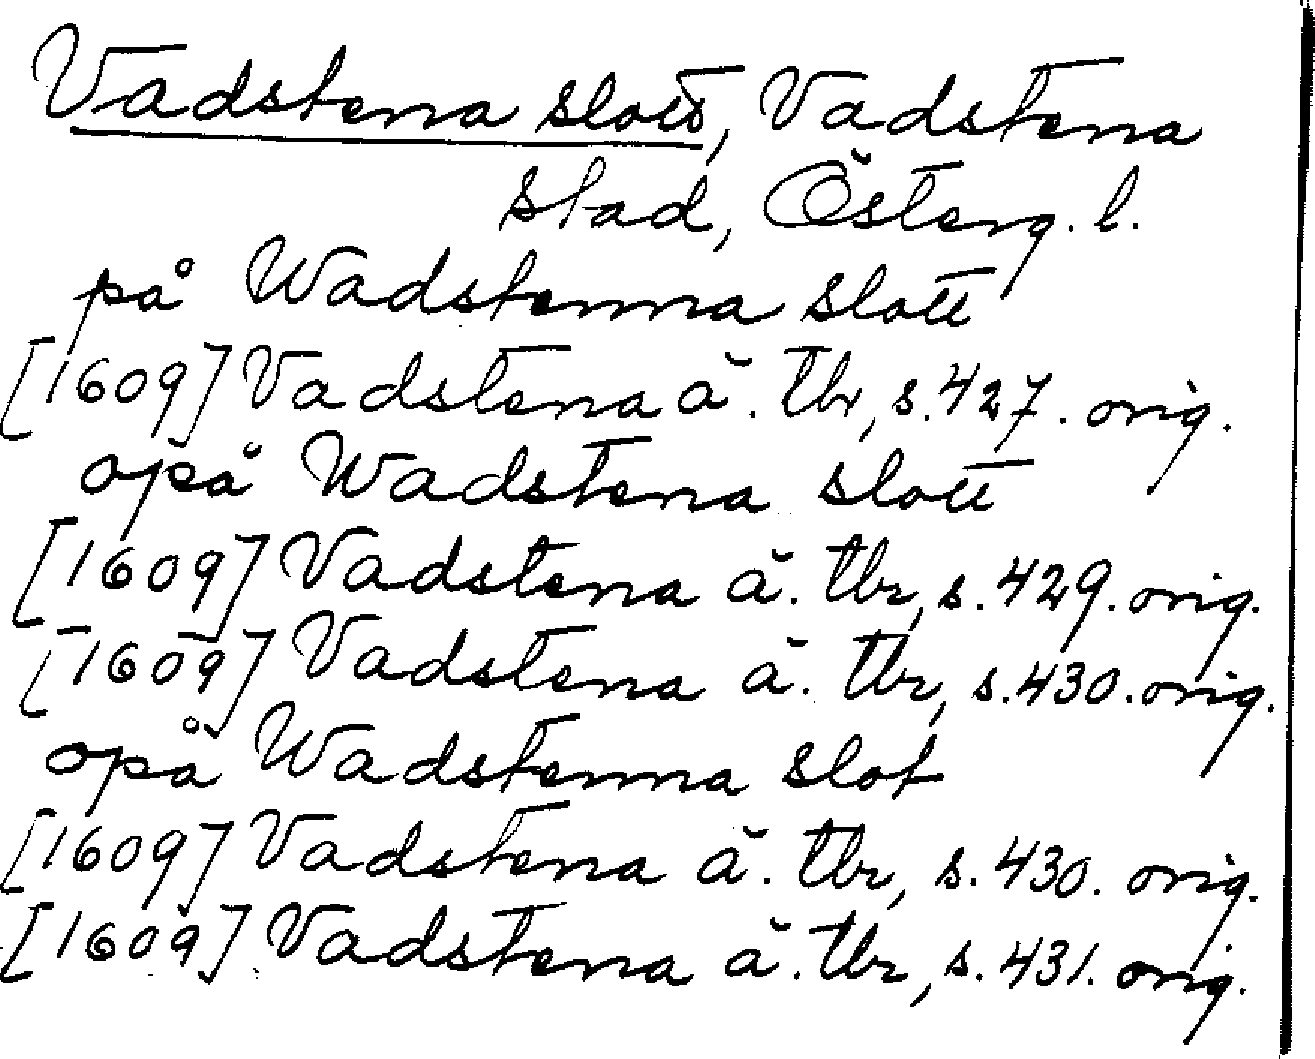 Vadstena slott, Vadstena
stad, Österg. l.
på Wadstenna slott
[1609] Vadstena ä. tbr, s. 427. orig.
opå Wadstena slott
[1609] Vadstena ä. tbr, s. 429. orig.
[1609] Vadstena ä. tbr, s. 430. orig.
opå Wadstenna slot
[1609] Vadstena ä. tbr, s. 430. orig.
[1609] Vadstena ä. tbr, s. 431. orig.